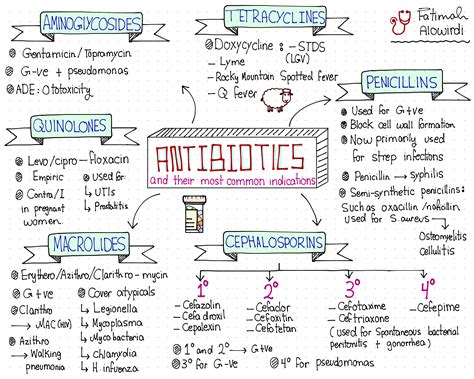 AMINOGLYCOSIDES
Gentamicin/Topramycin
G-ve + pseudomonas
ADE: Ototoxicity
TETRACYCLINES
Doxycycline: - STDS
(LGV)
- Lyme
- Rocky Mountain Spotted fever
- Q fever
Fatimah
Alowirdi
PENICILLINS
Used for G+ve
Block cell wall formation
Now primarily used
for strep infections
Penicillin → syphilis
Semi-synthetic penicillins:
Such as oxacillin/nafcillin
used for S.aureus →
Osteomyelitis
cellulitis
QUINOLONES
Levo/cipro-floxacin
Empiric
Contra/I
in pregnant
women.
used for
↳ UTIs
↳ Prostatitis
ANTIBIOTICS
and their most common indications
MACROLIDES
Erythero/Azithro/Clarithro-mycin
G+ve
Clarithro
→ MAC (HIV)
Azithro
→ Walking
pneumonia
Cover atypicals
↳ Legionella
↳ Mycoplasma
↳ Mycobacteria
↳ chlamydia
↳ H. influenza
CEPHALOSPORINS
1° 2° 3° 4°
- Cefazolin
- Cefadroxil
- Cepalexin
- Cefaclor
- Cefoxitin
- Cefotetan
- Cefotaxime
- Ceftriaxone
(used for Spontaneous bacterial
penitonitis + gonorrhea)
- Cefepime
1° and 2° → G+ve
3° for G-ve
4° for pseudomonas